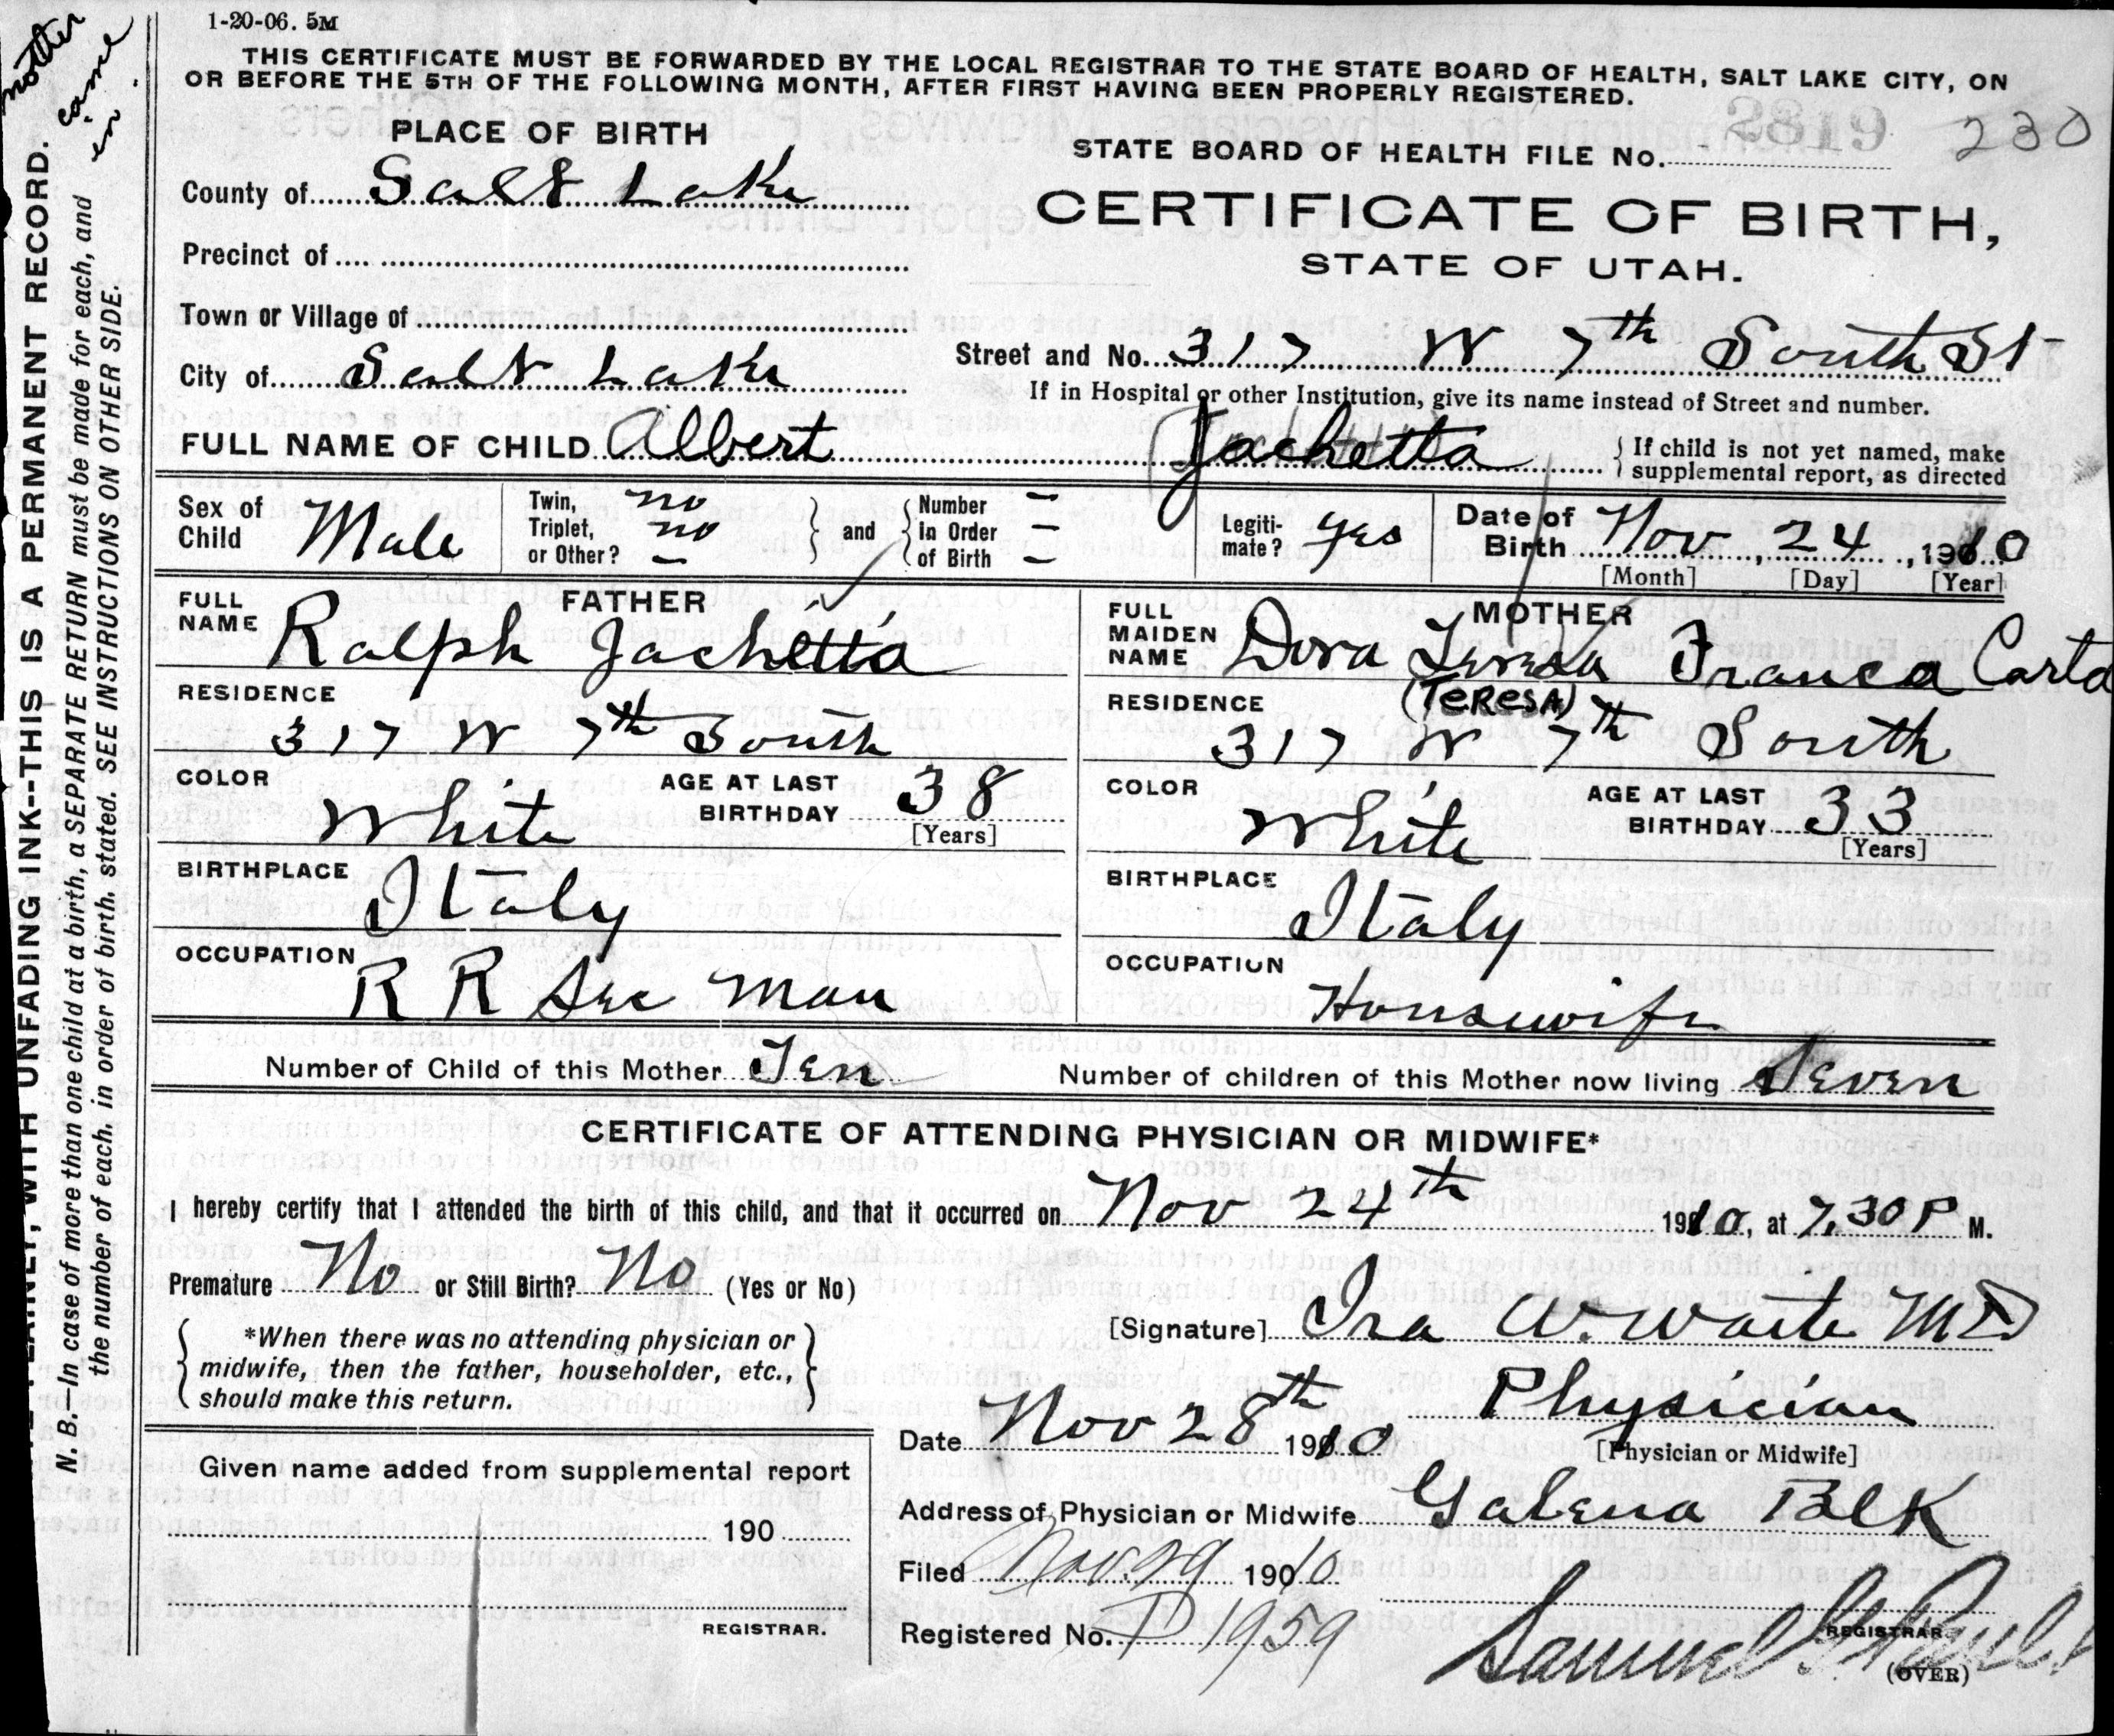 1-20-06. 5M
THIS CERTIFICATE MUST BE FORWARDED BY THE LOCAL REGISTRAR TO THE STATE BOARD OF HEALTH, SALT LAKE CITY, ON
OR BEFORE THE 5TH OF THE FOLLOWING MONTH, AFTER FIRST HAVING BEEN PROPERLY REGISTERED.
mother
came
in.
WITH UNFADING INK--THIS IS A PERMANENT RECORD.
N. B.—In case of more than one child at a birth, a SEPARATE RETURN must be made for each, and
the number of each, in order of birth, stated. SEE INSTRUCTIONS ON OTHER SIDE.
PLACE OF BIRTH
County of Salt Lake
Precinct of
Town or Village of
City of Salt Lake
STATE BOARD OF HEALTH FILE No. 230
CERTIFICATE OF BIRTH,
STATE OF UTAH.
Street and No. 317 W 7th South St
If in Hospital or other Institution, give its name instead of Street and number.
FULL NAME OF CHILD Albert Jachetta
If child is not yet named, make
supplemental report, as directed
Sex of
Child Male
Twin, no
Triplet, no
or Other? –
and
Number –
in Order –
of Birth –
Legiti-
mate? yes
Date of
Birth Nov, 24, 1910
[Month] [Day] [Year]
FATHER
FULL
NAME Ralph Jachetta
RESIDENCE
317 W 7th South
COLOR
White
AGE AT LAST
BIRTHDAY 38
[Years]
BIRTHPLACE
Italy
OCCUPATION
R R Sec Man
MOTHER
FULL
MAIDEN
NAME Dora Teresa Franca Carta
(TERESA)
RESIDENCE
317 W 7th South
COLOR
White
AGE AT LAST
BIRTHDAY 33
[Years]
BIRTHPLACE
Italy
OCCUPATION
Housewife
Number of Child of this Mother Ten
Number of children of this Mother now living Seven
CERTIFICATE OF ATTENDING PHYSICIAN OR MIDWIFE*
I hereby certify that I attended the birth of this child, and that it occurred on Nov 24th 1910, at 7.30 P M.
Premature No or Still Birth? No (Yes or No)
*When there was no attending physician or
midwife, then the father, householder, etc.,
should make this return.
[Signature] Ira W. Waite MD
Date Nov 28th 1910
Physician
[Physician or Midwife]
Given name added from supplemental report
190
REGISTRAR.
Address of Physician or Midwife Galena Blk
Filed Nov. 29 1910
Registered No. P 1959
Samuel G.
REGISTRAR.
(OVER)